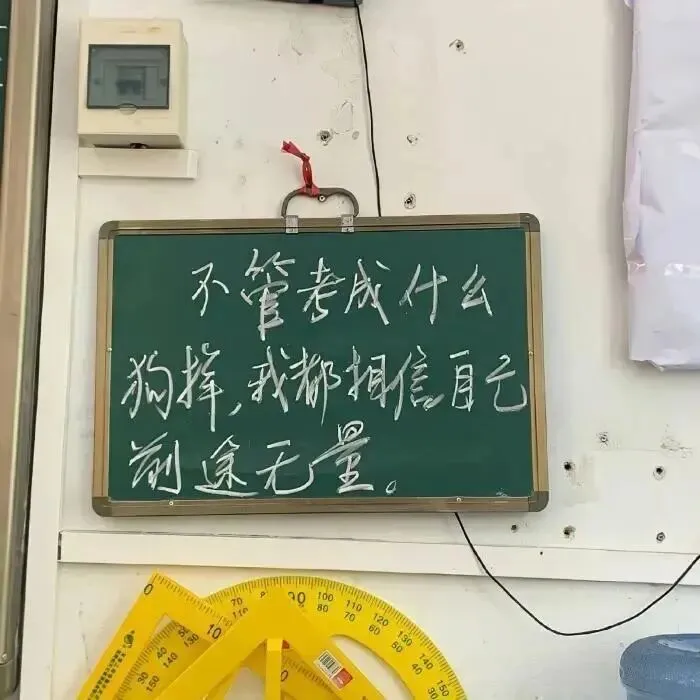 不管考成什么
狗样,我都相信自己
前途无量。
0
10
70 100 100 110 120 130 140 150
80 70 60 50 40 30
150 140 130
30